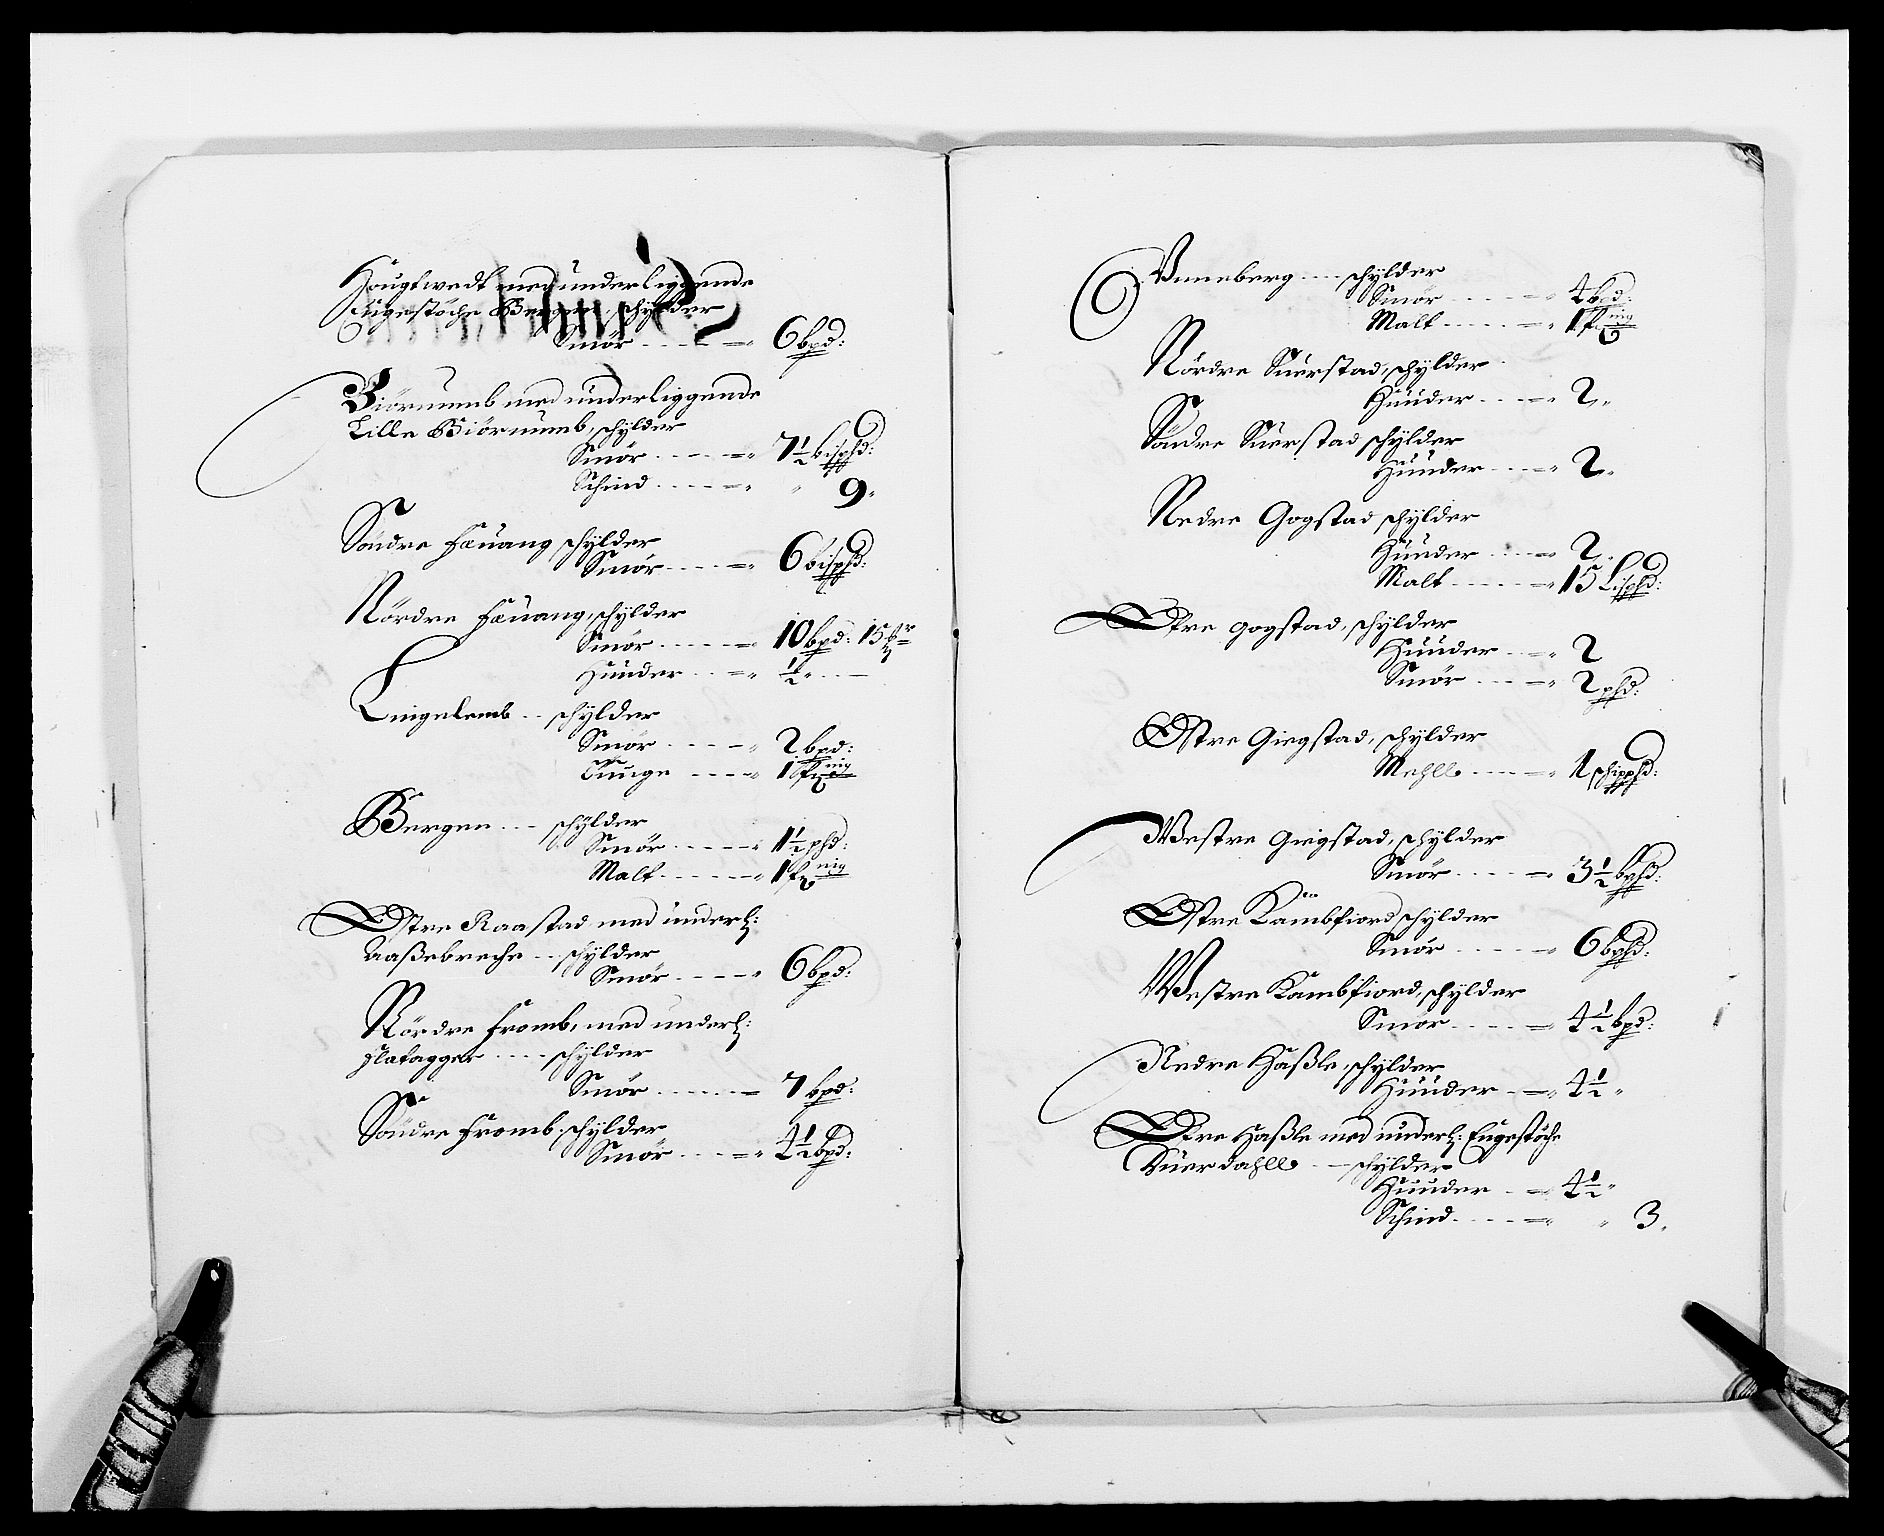 Hougtwedt med underliggende
Engestöche Bergen, schylder
Smör - - - - 6 bpd:
Biörnumb med underliggende
Lille Biörnumb, schylder
Smör - - - - 7½ bisphd:
Schind - - - - " 9"
Söndre Fæuang schylder
Smör - - - - 6 bisphd:
Nördre Fæuang, schylder
Smör - - - - 10 bpd: 15
Huuder - - - ½ " - - -
Lingelemb - - schylder
Smör - - - - 2 bpd:
Tunge - - - - 1
Bergen - - - schylder
Smör - - - - 1½ phd:
Malt - - - - 1
Ostre Raastad med underl:
Aaßebreche - - schylder
Smör - - - - 6 bpd:
Nördre Fromb, med underl:
Flatagger - - - - schylder
Smör - - - - 7 bpd:
Söndre Fromb. schylder
Smör - - - - 4½ bpd:
Unneberg - - - - schylder
Smör - - - - 4 bpd:
Malt - - - - 1
Nördre Suerstad, schylder
Huuder - - - - 2"
Söndre Suerstad schylder
Huuder - - - - 2"
Nedre Gogstad schylder
Huuder - - - - 2"
Malt - - - - 15 Lisphd:
Öfre gogstad, schylder
Huuder - - - 2
Smör - - - - 2 phd:
Ostre Giegstad, schylder
Mehll - - - - 1 schipphd:
Westre Giegstad, schylder
Smör - - - - 3½ bphd:
Ostre Kambfiord schylder
Smör - - - - 6 bphd:
Westre Kambfiord, schylder
Smör - - - - 4½ bpd:
Nedre Haßle, schylder
Huuder - - - 4½ "
Öfre Haßle med underl: Engestöche
Kuerdahll - - - schylder
Huuder - - - 4½ "
Schind - - - - " 3"